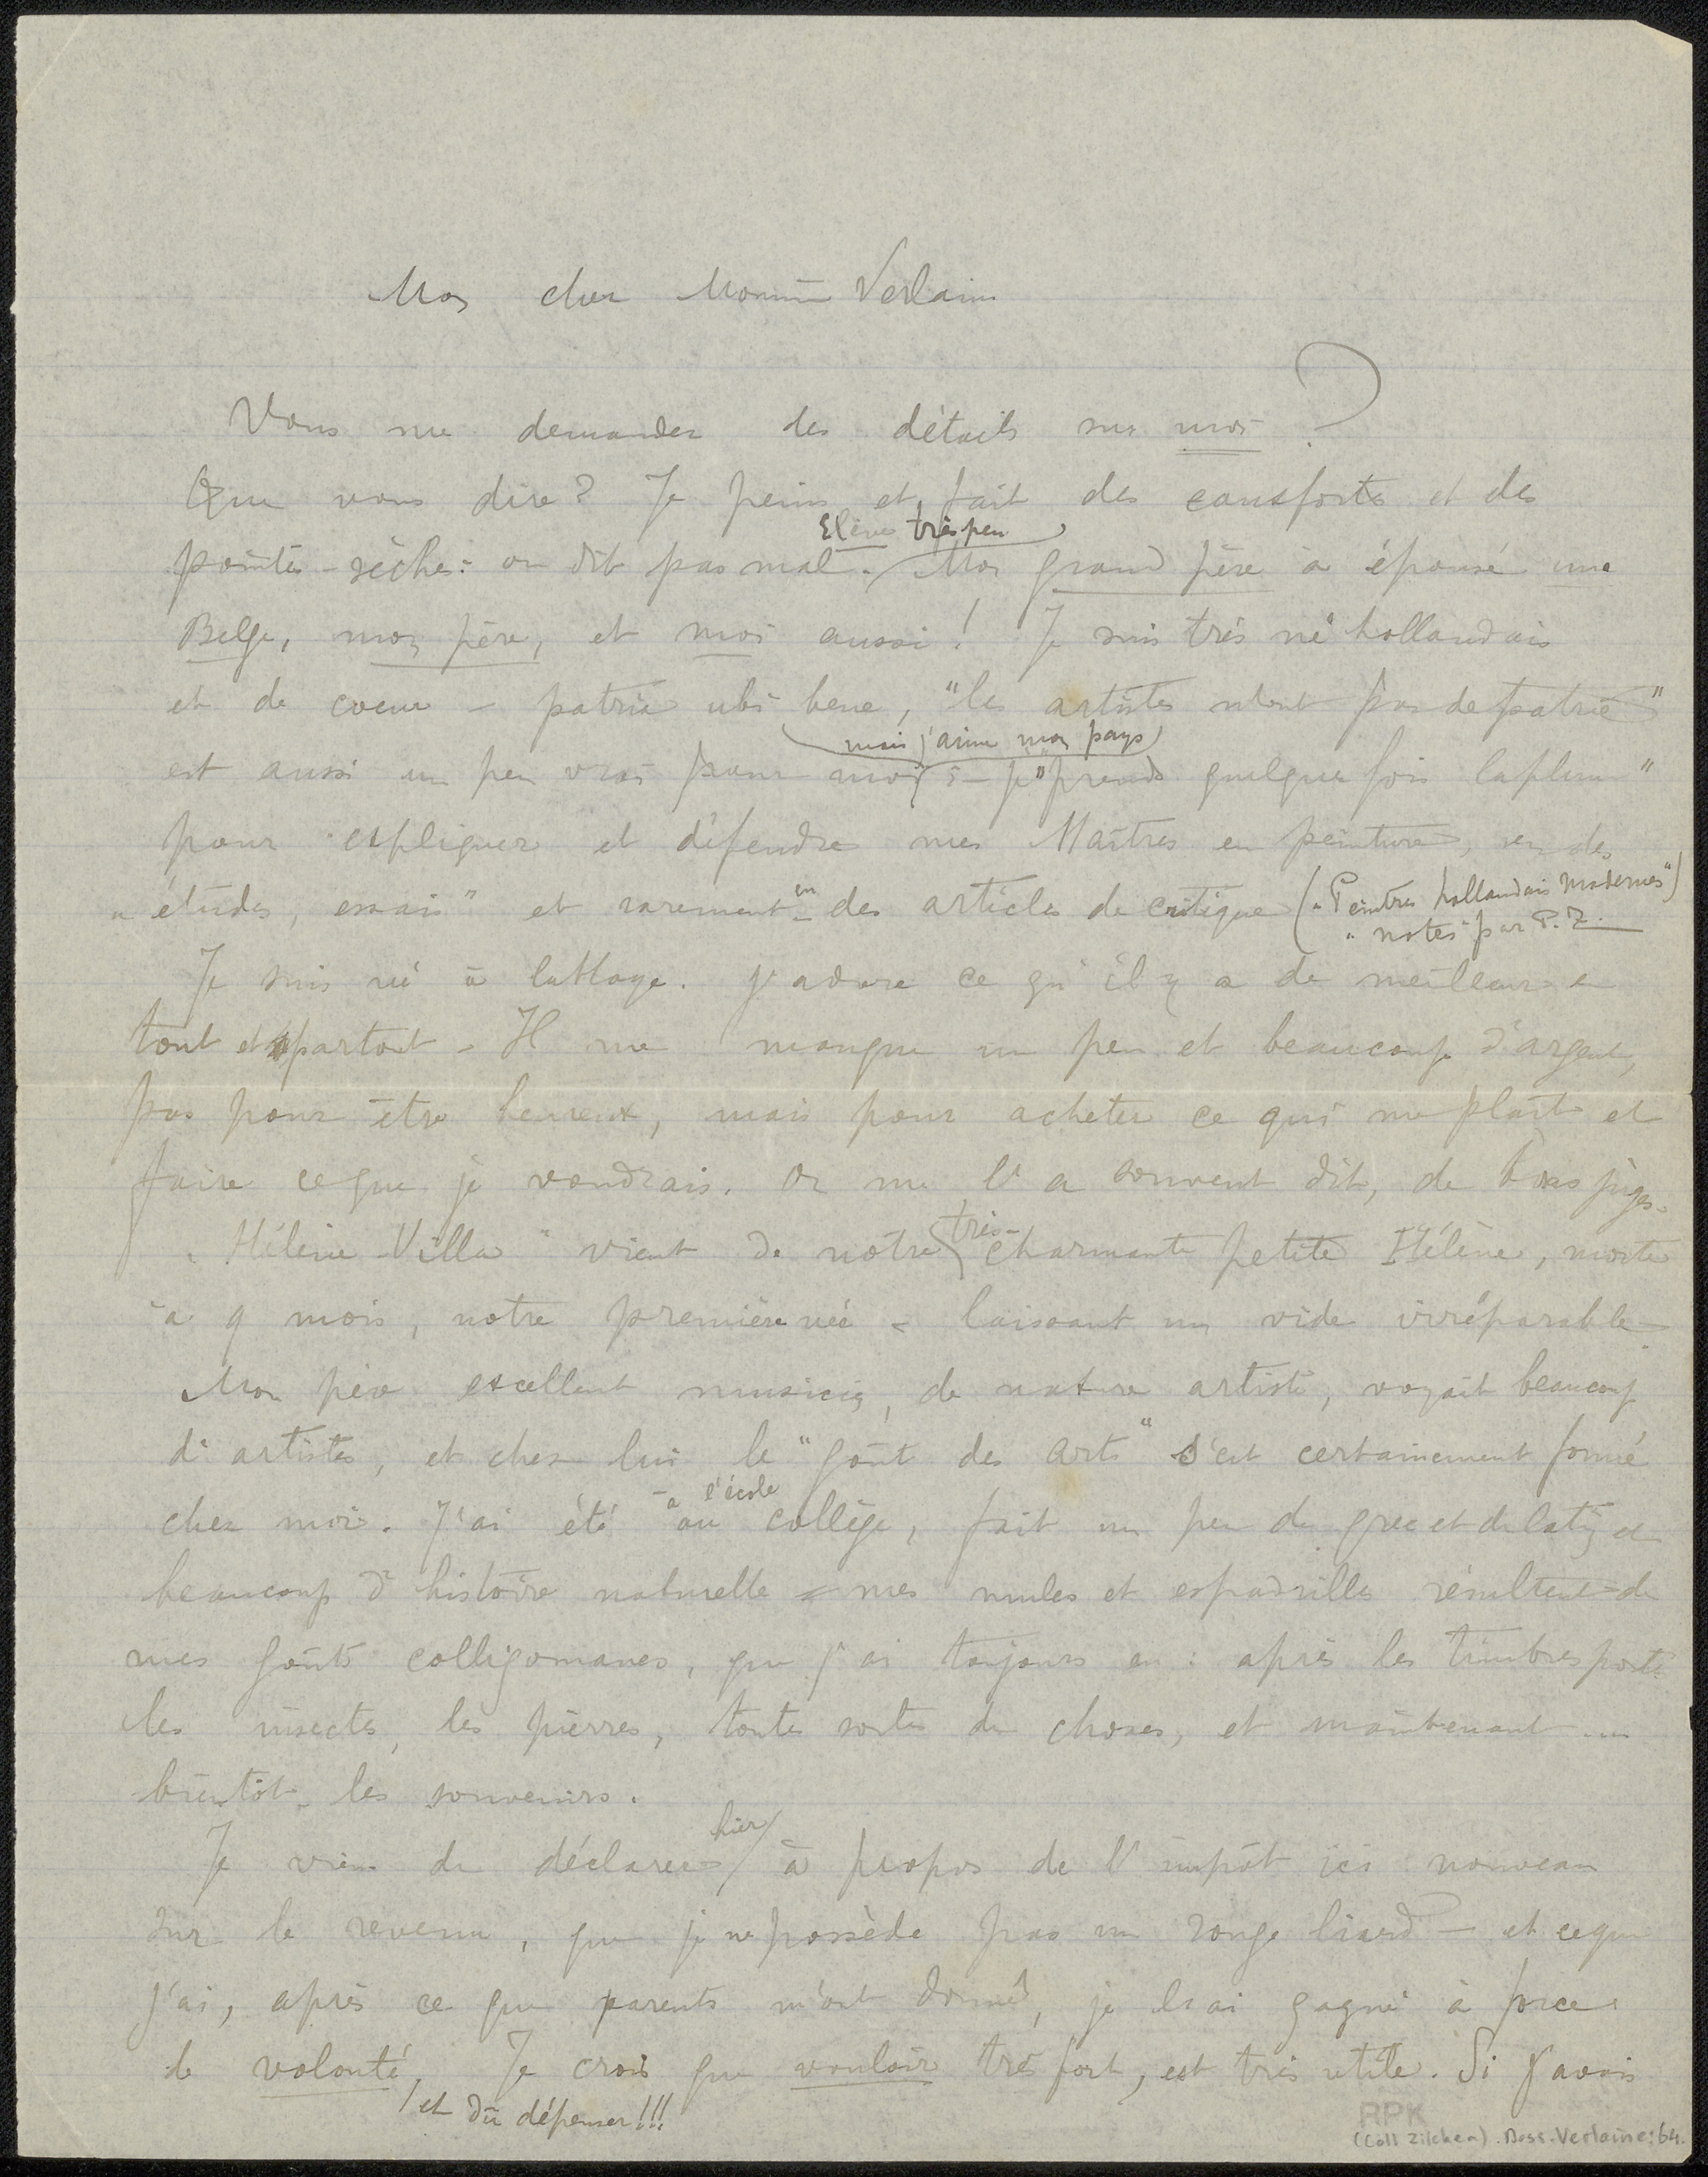 Mon cher Monsieur Verlaine
Vous me demandez des détails sur moi ?
Que vous dire? Je peins et fait des eauxfortes et des
Elève très peu
pointes-sèches: on dit pas mal. Mon grand père a épousé une
Belge, mon père, et moi aussi! Je suis très né hollandais
et de coeur - patria ubi bene, "les artistes n'ont pas de patrie"
mais j'aime mon pays
est aussi un peu vrai pour moi - je "prends quelque fois la plume"
pour expliquer et défendre mes Maîtres en peinture, en des
"études, essais" et rarement en des articles de critique ("Peintres hollandais modernes")
"notes par P. Z.
Je suis né à la Haye. J'adore ce qu'il y a de meilleur en
tout et partout - Il me manque un peu et beaucoup d'argent,
pas pour être heureux, mais pour acheter ce qui me plaît et
faire ce que je voudrais. On me l'a souvent dit, de bons juges.
"Hélène-Villa" vient de notre très-charmante petite Hélène, morte
à 9 mois, notre première née - laissant un vide irréparable
Mon père excellent musicien, de nature artiste, voyait beaucoup
d'artistes, et chez lui le "goût des arts" s'est certainement formé
à l'école
chez moi. J'ai été au collège, fait un peu de grec et de latin et
beaucoup d'histoire naturelle - mes mules et espadrilles résultent de
mes goûts colligomanes, que j'ai toujours eu: après les timbres poste
les insectes, les pierres, toutes sortes de choses, et maintenant ...
bientôt les souvenirs.
hier
Je viens de déclarer à propos de l'impôt ici nouveau
sur le revenu, que je ne possède pas un rouge liard - et ce que
j'ai, après ce que parents m'ont donné, je l'ai gagné à force
de volonté. Je crois que vouloir très fort, est très utile. Si j'avais
et dû dépenser!!!
RPK
(Coll Zilcken). Doss. Verlaine: 64.